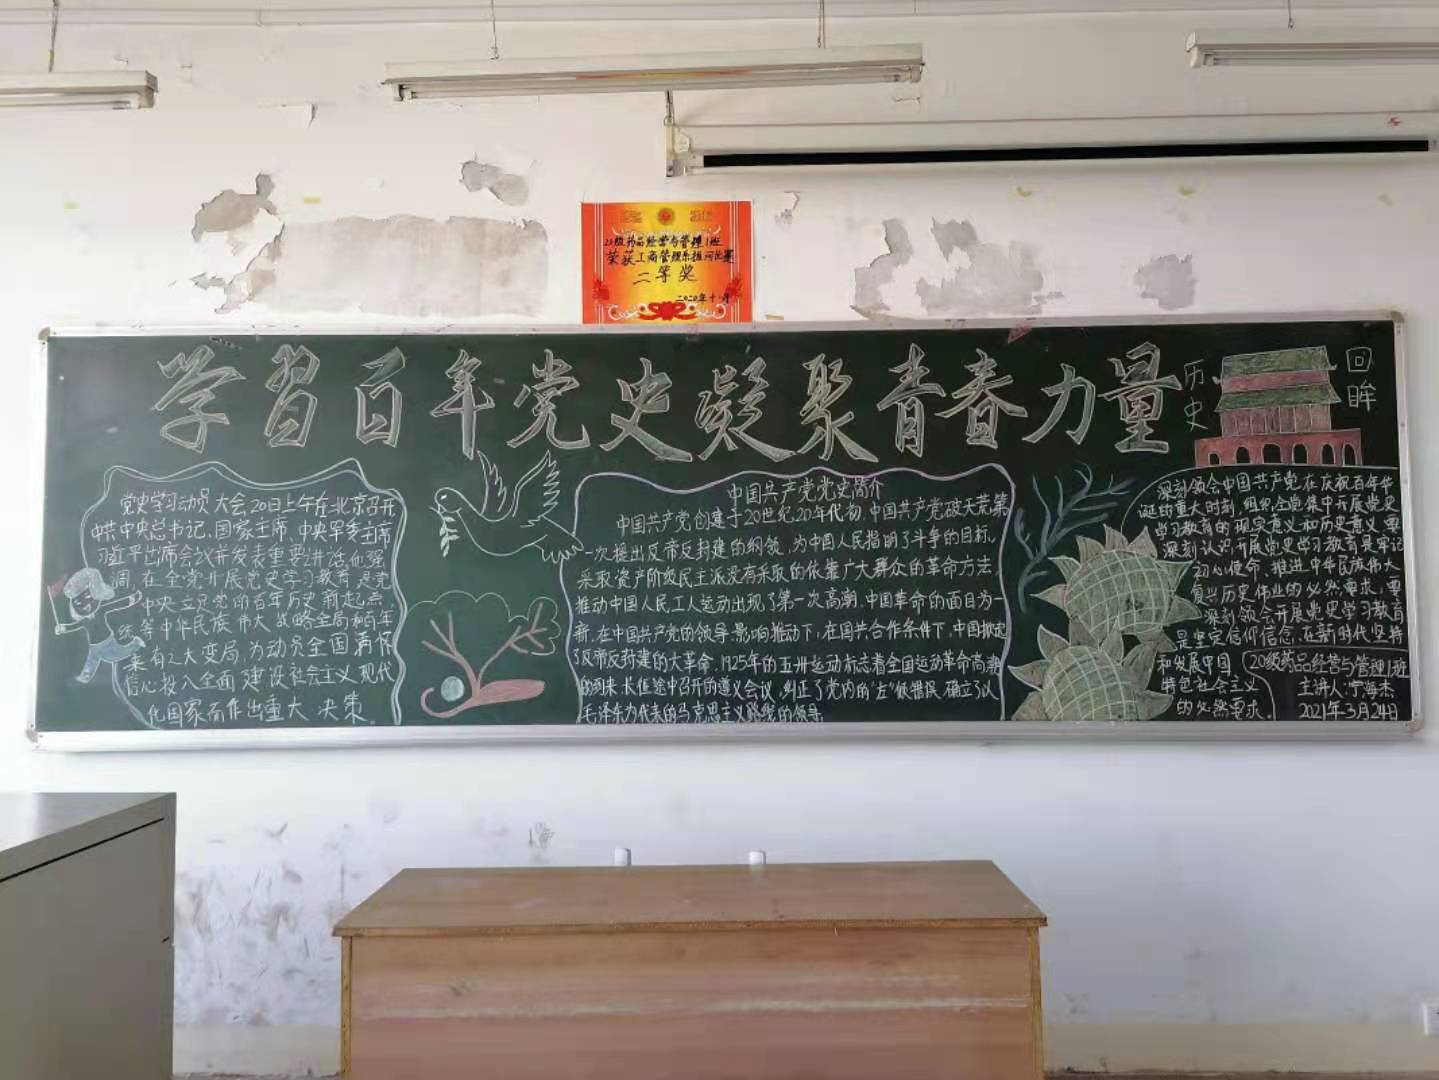 奖状
20级药品经营与管理1班
荣获工商管理系拔河比赛
二等奖
2020年十一月
学习百年党史凝聚青春力量
历史
回眸
党史学习动员大会20日上午在北京召开
中共中央总书记、国家主席、中央军委主席
习近平出席会议并发表重要讲话，他强
调，在全党开展党史学习教育是党
中央立足党的百年历史新起点，
统筹中华民族伟大战略全局和百年
未有之大变局，为动员全国满怀
信心投入全面建设社会主义现代
化国家而作出重大决策。
中国共产党党史简介
中国共产党创建于20世纪20年代初，中国共产党破天荒第
一次提出反帝反封建的纲领，为中国人民指明了斗争的目标，
采取资产阶级民主派没有采取的依靠广大群众的革命方法
推动中国人民工人运动出现了第一次高潮，中国革命的面目为一
新，在中国共产党的领导影响推动下，在国共合作条件下，中国掀起
了反帝反封建的大革命，1925年的五卅运动标志着全国运动革命高潮
的到来，长征途中召开的遵义会议，纠正了党内的“左”倾错误，确立了以
毛泽东为代表的马克思主义路线的领导
深刻领会中国共产党在庆祝百年华
诞的重大时刻，组织全党集中开展党史
学习教育的现实意义和历史意义，要
深刻认识开展党史学习教育是牢记
初心使命、推进中华民族伟大
复兴历史伟业的必然要求，要
深刻领会开展党史学习教育
是坚定信仰信念，在新时代坚持
和发展中国
特色社会主义
的必然要求。
20级药品经营与管理1班
主讲人：宁海杰
2021年3月24日